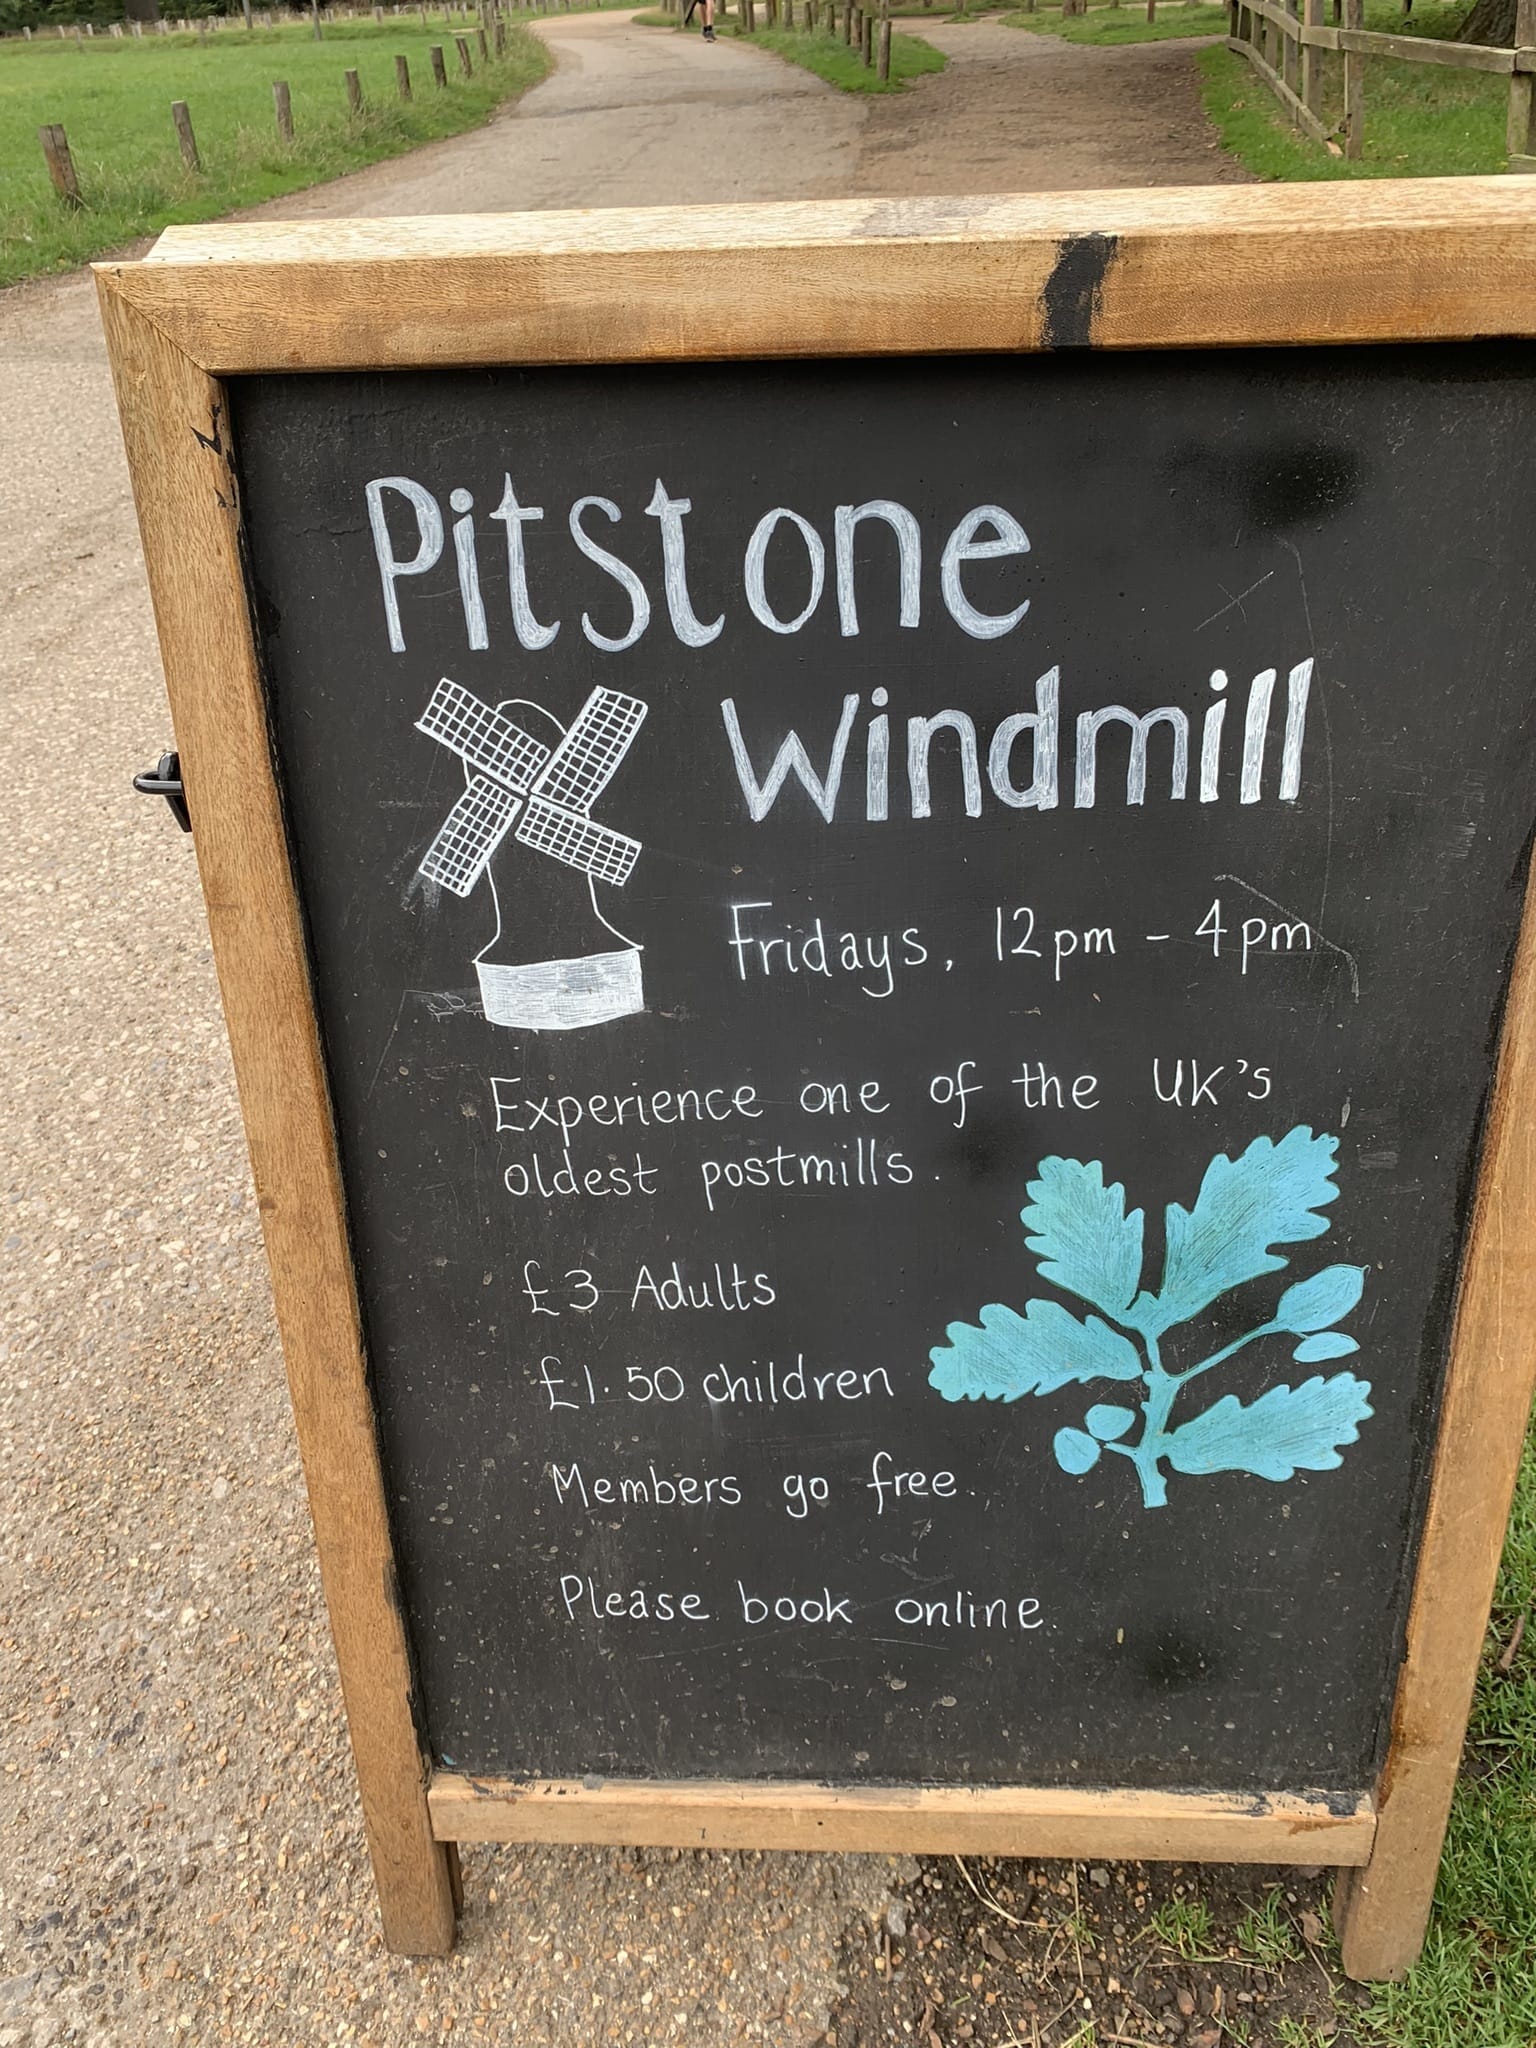 Pitstone
Windmill
Fridays, 12pm - 4pm
Experience one of the UK's
oldest postmills.
£3 Adults
£1.50 children
Members go free.
Please book online.